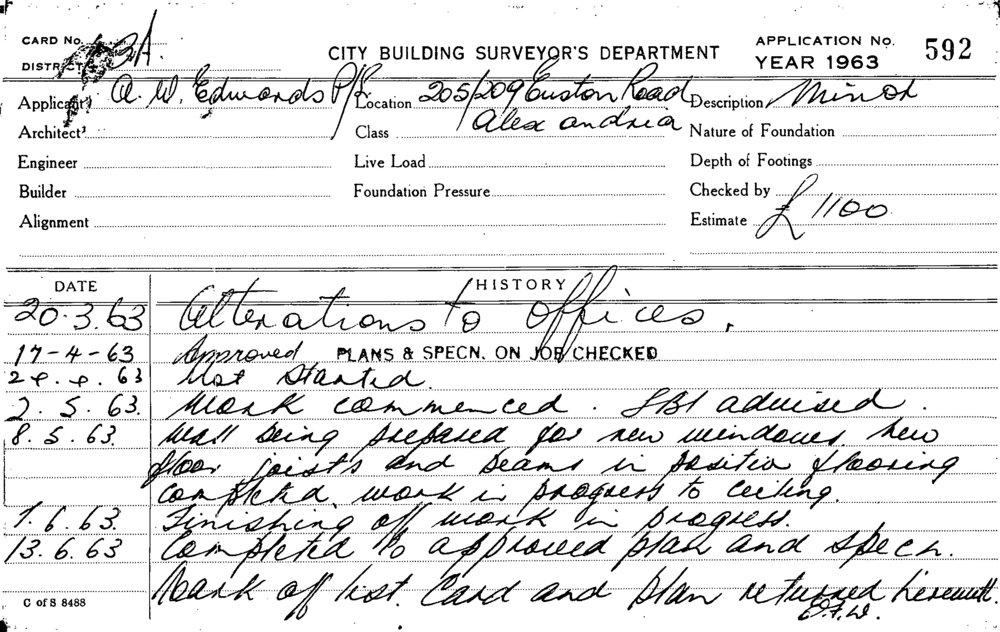 CARD No. 
CITY BUILDING SURVEYOR'S DEPARTMENT
APPLICATION No. 592
DISTRICT 3A.
YEAR 1963
Applicant A. W. Edwards P/L Location 205/209 Euston Road Description Minor
Architect Class Alexandria Nature of Foundation
Engineer Live Load Depth of Footings
Builder Foundation Pressure Checked by
Alignment Estimate £1100
DATE HISTORY
20.3.63 Alterations to Offices.
17-4-63 Approved PLANS & SPECN. ON JOB CHECKED
24.4.63 Not Started.
2.5.63. Work commenced. SBI advised.
8.5.63. Wall being prepared for new windows. New
floor joists and beams in positin flooring
completed. work in progress to ceiling.
7.6.63. Finishing off work in progress.
13.6.63 Completed to approved plan and specn.
Mark off list. Card and plan returned herewith.
C of S 8488